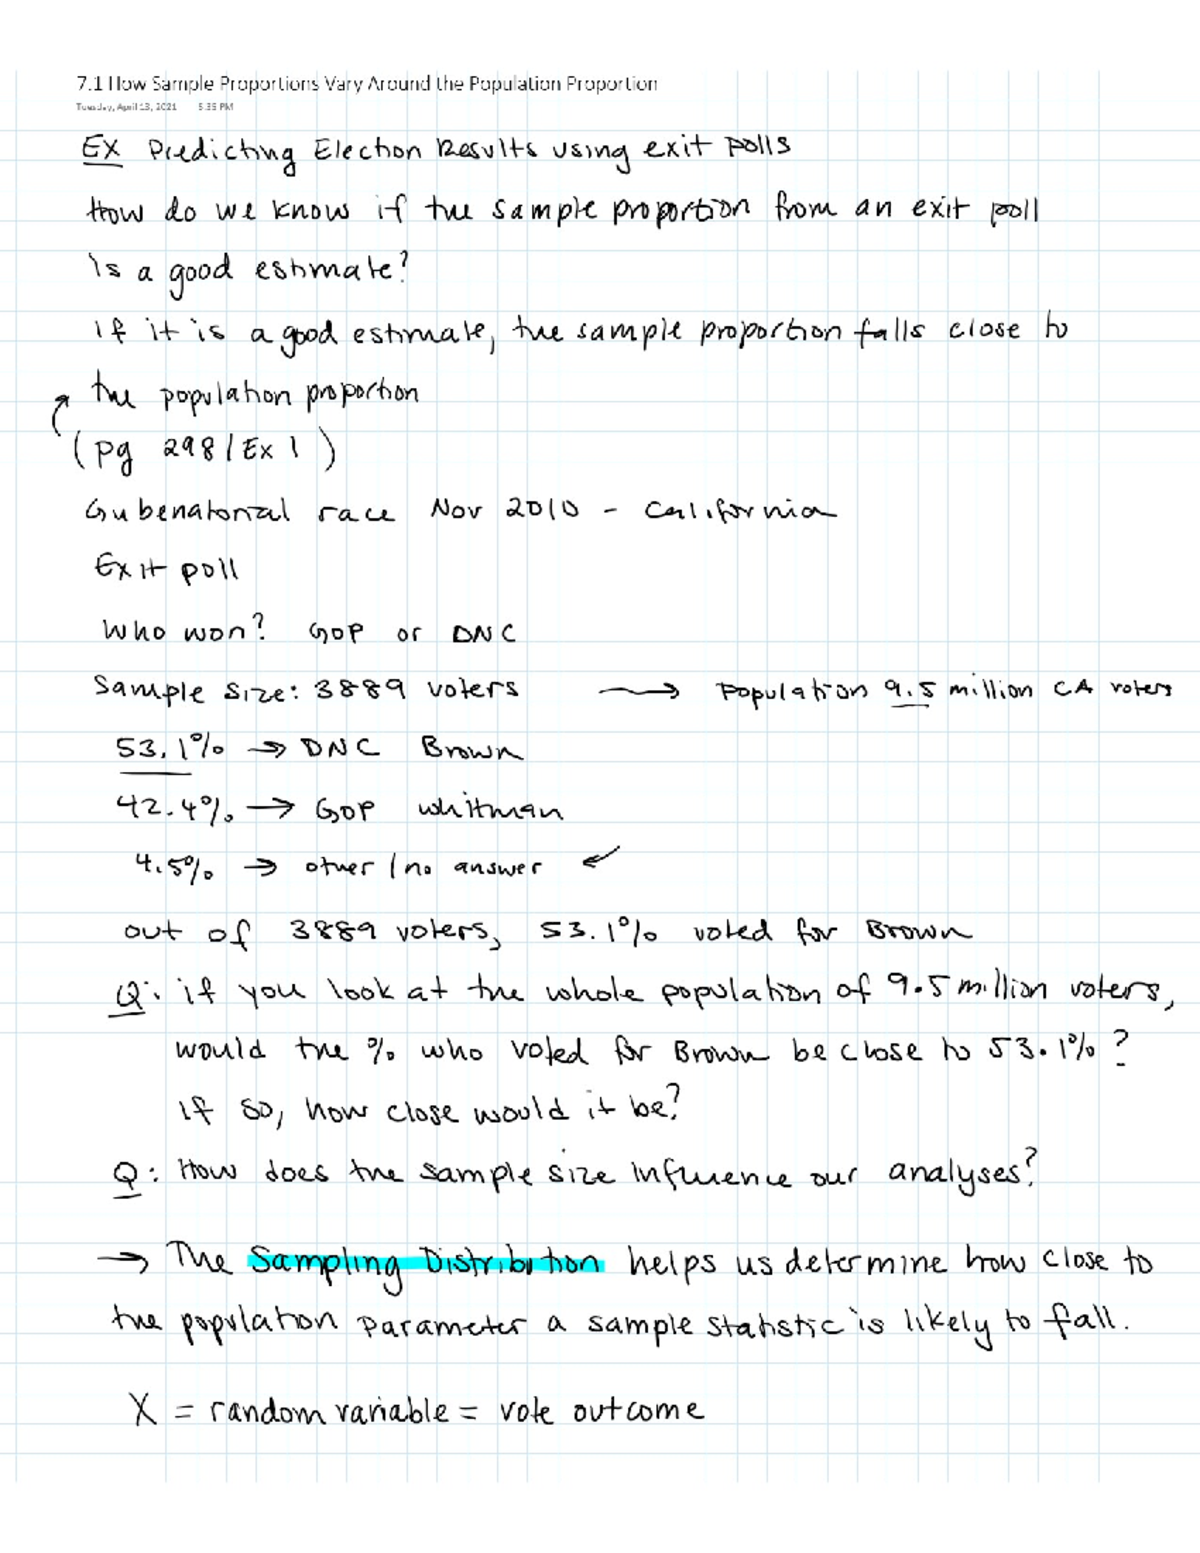 7.1 How Sample Proportions Vary Around the Population Proportion
Tuesday, April 13, 2021 5:35 PM
EX Predicting Election Results using exit polls
How do we know if the sample proportion from an exit poll
is a good estimate?
If it is a good estimate, the sample proportion falls close to
the population proportion
(pg 298/Ex 1)
Gubenatorial race Nov 2010 - California
Exit poll
Who won? GOP or DNC
Sample size: 3889 voters → Population 9.5 million CA voters
53.1% → DNC Brown
42.4% → GOP Whitman
4.5% → other/no answer ↙
out of 3889 voters, 53.1% voted for Brown
Q: if you look at the whole population of 9.5 million voters,
would the % who voted for Brown be close to 53.1%?
If so, how close would it be?
Q: How does the sample size influence our analyses?
→ The Sampling Distribution helps us determine how close to
the population parameter a sample statistic is likely to fall.
X = random variable = vote outcome